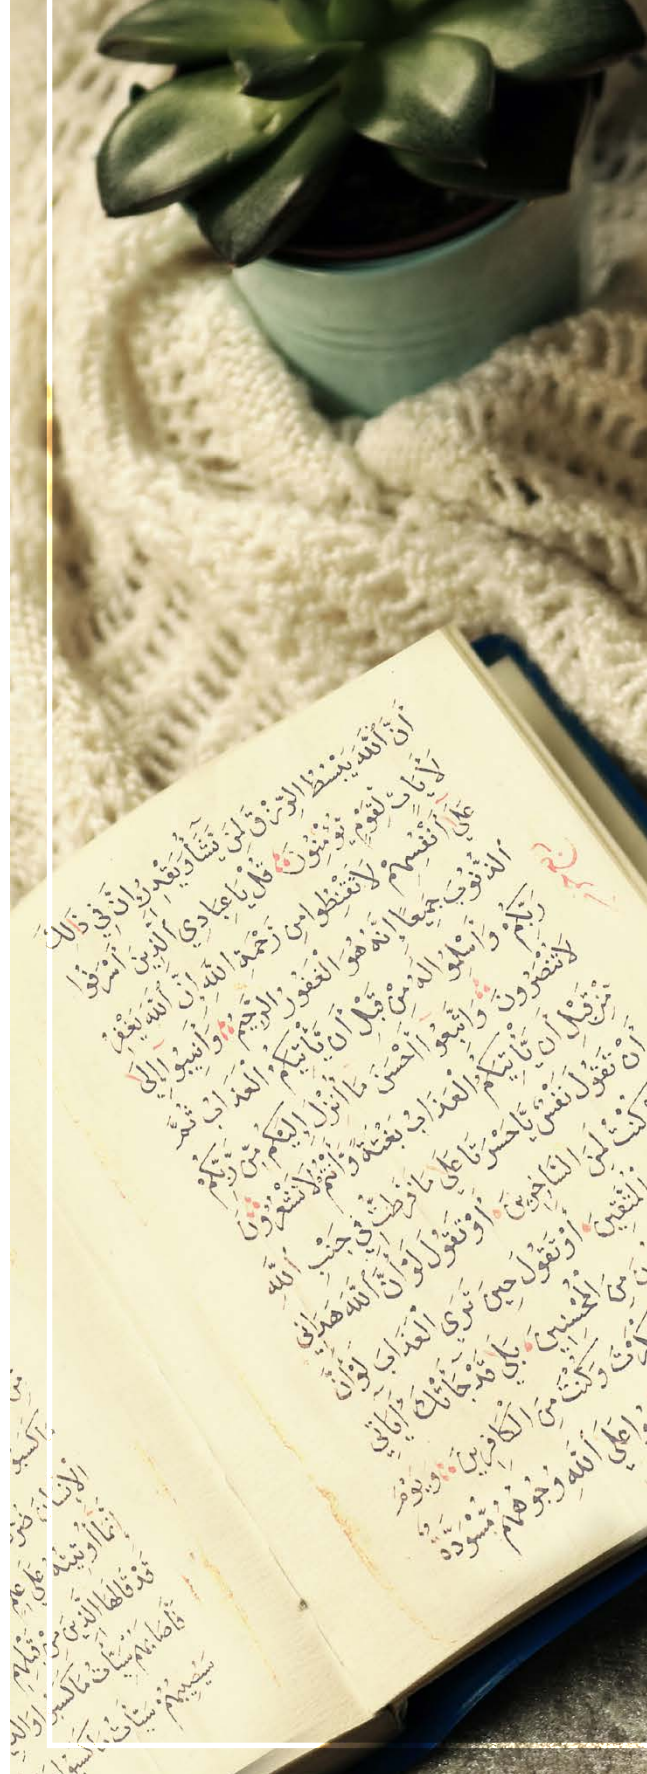 أَنَّ اللَّهَ يَبْسُطُ الرِّزْقَ لِمَن يَّشَآءُ وَيَقْدِرُ إِنَّ فِي ذَالِكَ
لَأَيَاتٍ لِّقَوْمٍ يُؤْمِنُونَ قُلْ يَا عِبَادِيَ الَّذِينَ أَسْرَفُوا
عَلَى أَنْفُسِهِمْ لَا تَقْنَطُوا مِن رَّحْمَةِ اللَّهِ إِنَّ اللَّهَ يَغْفِرُ
الذُّنُوبَ جَمِيعًا إِنَّهُ هُوَ الْغَفُورُ الرَّحِيمُ وَأَنِيبُوا إِلَى
رَبِّكُمْ وَأَسْلِمُوا لَهُ مِنْ قَبْلِ أَن يَّأْتِيَكُمُ الْعَذَابُ ثُمَّ
لَا تُنْصَرُونَ وَاتَّبِعُوا أَحْسَنَ مَا أُنْزِلَ إِلَيْكُم مِّن رَّبِّكُمْ
مِّنْ قَبْلِ أَن يَّأْتِيَكُمُ الْعَذَابُ بَغْتَةً وَأَنْتُمْ لَا تَشْعُرُونَ
أَنْ تَقُولَ نَفْسٌ يَا حَسْرَتَا عَلَى مَا فَرَّطْتُ فِي جَنْبِ اللَّهِ
كُنْتُ لَمِنَ السَّاخِرِينَ أَوْ تَقُولَ لَوْ أَنَّ اللَّهَ هَدَانِي
الْمُتَّقِينَ أَوْ تَقُولَ حِينَ تَرَى الْعَذَابَ لَوْ أَنَّ
مِنَ الْمُحْسِنِينَ بَلَى قَدْ جَآءَتْكَ أَيَاتِي
وَكُنْتَ مِنَ الْكَافِرِينَ وَيَوْمَ
عَلَى اللَّهِ وُجُوهُهُم مُّسْوَدَّةٌ
الْإِنْسَانَ ضُرٌّ
إِنَّمَا أُوتِيتُهُ عَلَى عِلْمٍ
قَدْ قَالَهَا الَّذِينَ مِنْ قَبْلِهِمْ
فَأَصَابَهُمْ سَيِّئَاتُ مَا كَسَبُوا وَالَّذِينَ
سَيُصِيبُهُمْ سَيِّئَاتُ مَا كَسَبُوا